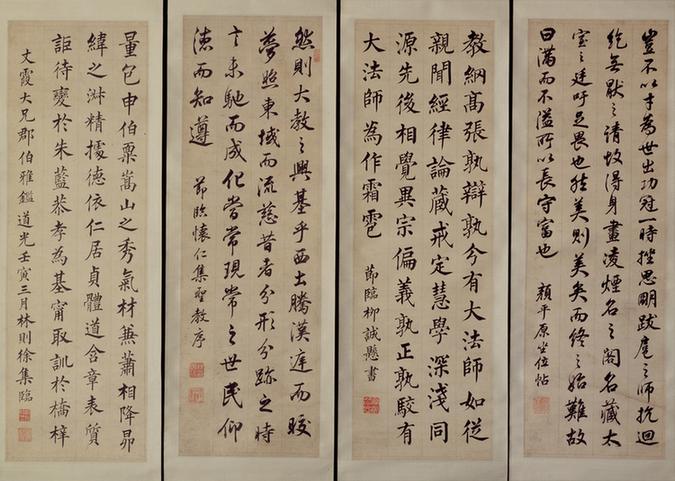 豈不以才為世出功冠一時挫思明跋扈之師抗迴
紇無厭之請故得身畫凌煙名之閣名藏太
室之廷吁足畏也然美則美矣而終之始難故
曰滿而不溢所以長守富也
顏平原坐位帖
教綱高張孰辯孰分有大法師如從
親聞經律論藏戒定慧學深淺同
源先後相覺異宗偏義孰正孰駮有
大法師為作霜雹
節臨柳誠懸書
然則大教之興基乎西土騰漢庭而皎
夢照東域而流慈昔者分形分跡之時
言未馳而成化當常現常之世民仰
德而知遵
節臨懷仁集聖教序
量包申伯稟嵩山之秀氣材兼蕭相降昴
緯之淋精據德依仁居貞體道含章表質
詎待變於朱藍恭孝為基甯取訓於橋梓
文霞大兄郡伯雅鑑道光壬寅三月林則徐集臨